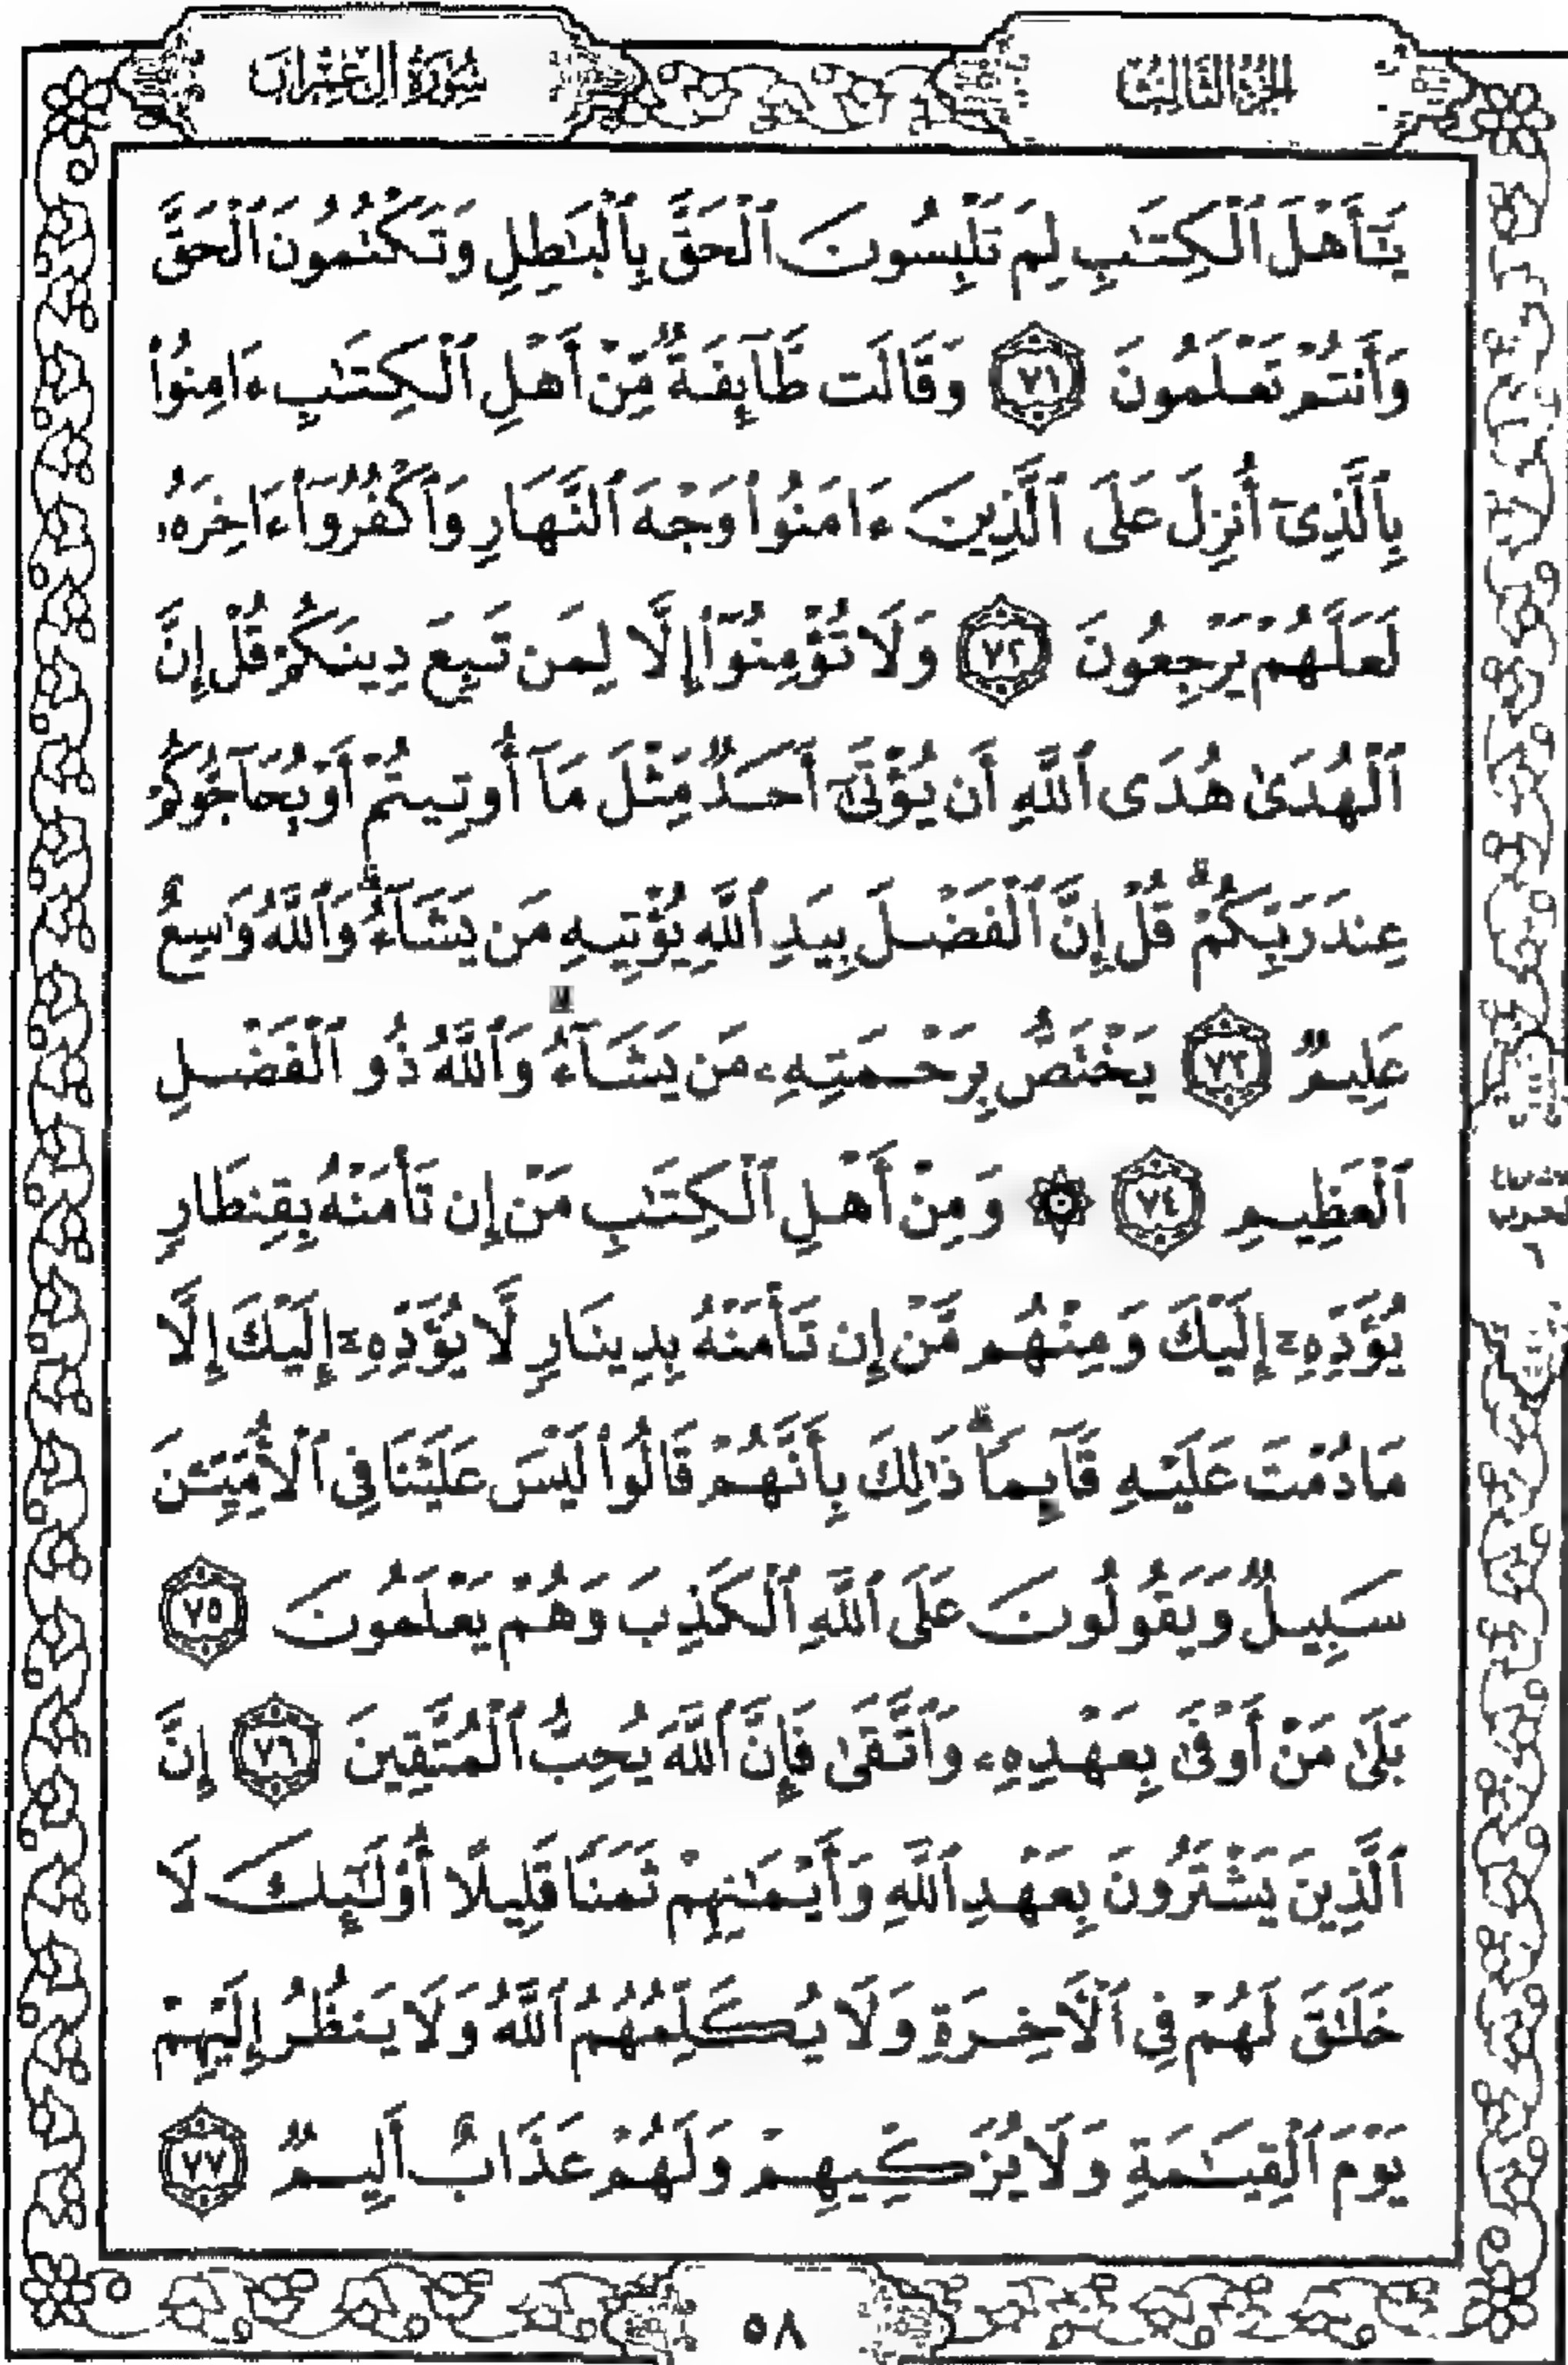 الجزء الثالث
سورة آل عمران
يَٰٓأَهۡلَ ٱلۡكِتَٰبِ لِمَ تَلۡبِسُونَ ٱلۡحَقَّ بِٱلۡبَٰطِلِ وَتَكۡتُمُونَ ٱلۡحَقَّ
وَأَنتُمۡ تَعۡلَمُونَ ٧١ وَقَالَت طَّآئِفَةٞ مِّنۡ أَهۡلِ ٱلۡكِتَٰبِ ءَامِنُواْ
بِٱلَّذِيٓ أُنزِلَ عَلَى ٱلَّذِينَ ءَامَنُواْ وَجۡهَ ٱلنَّهَارِ وَٱكۡفُرُوٓاْ ءَاخِرَهُۥ
لَعَلَّهُمۡ يَرۡجِعُونَ ٧٢ وَلَا تُؤۡمِنُوٓاْ إِلَّا لِمَن تَبِعَ دِينَكُمۡ قُلۡ إِنَّ
ٱلۡهُدَىٰ هُدَى ٱللَّهِ أَن يُؤۡتَىٰٓ أَحَدٞ مِّثۡلَ مَآ أُوتِيتُمۡ أَوۡ يُحَآجُّوكُمۡ
عِندَ رَبِّكُمۡۗ قُلۡ إِنَّ ٱلۡفَضۡلَ بِيَدِ ٱللَّهِ يُؤۡتِيهِ مَن يَشَآءُۗ وَٱللَّهُ وَٰسِعٌ
عَلِيمٞ ٧٣ يَخۡتَصُّ بِرَحۡمَتِهِۦ مَن يَشَآءُۗ وَٱللَّهُ ذُو ٱلۡفَضۡلِ
ٱلۡعَظِيمِ ٧٤ ۞ وَمِنۡ أَهۡلِ ٱلۡكِتَٰبِ مَنۡ إِن تَأۡمَنۡهُ بِقِنطَارٖ
يُؤَدِّهِۦٓ إِلَيۡكَ وَمِنۡهُم مَّنۡ إِن تَأۡمَنۡهُ بِدِينَارٖ لَّا يُؤَدِّهِۦٓ إِلَيۡكَ إِلَّا
مَا دُمۡتَ عَلَيۡهِ قَآئِمٗاۗ ذَٰلِكَ بِأَنَّهُمۡ قَالُواْ لَيۡسَ عَلَيۡنَا فِي ٱلۡأُمِّيِّـۧنَ
سَبِيلٞ وَيَقُولُونَ عَلَى ٱللَّهِ ٱلۡكَذِبَ وَهُمۡ يَعۡلَمُونَ ٧٥
بَلَىٰ مَنۡ أَوۡفَىٰ بِعَهۡدِهِۦ وَٱتَّقَىٰ فَإِنَّ ٱللَّهَ يُحِبُّ ٱلۡمُتَّقِينَ ٧٦ إِنَّ
ٱلَّذِينَ يَشۡتَرُونَ بِعَهۡدِ ٱللَّهِ وَأَيۡمَٰنِهِمۡ ثَمَنٗا قَلِيلًا أُوْلَٰٓئِكَ لَا
خَلَٰقَ لَهُمۡ فِي ٱلۡأٓخِرَةِ وَلَا يُكَلِّمُهُمُ ٱللَّهُ وَلَا يَنظُرُ إِلَيۡهِمۡ
يَوۡمَ ٱلۡقِيَٰمَةِ وَلَا يُزَكِّيهِمۡ وَلَهُمۡ عَذَابٌ أَلِيمٞ ٧٧
٥٨